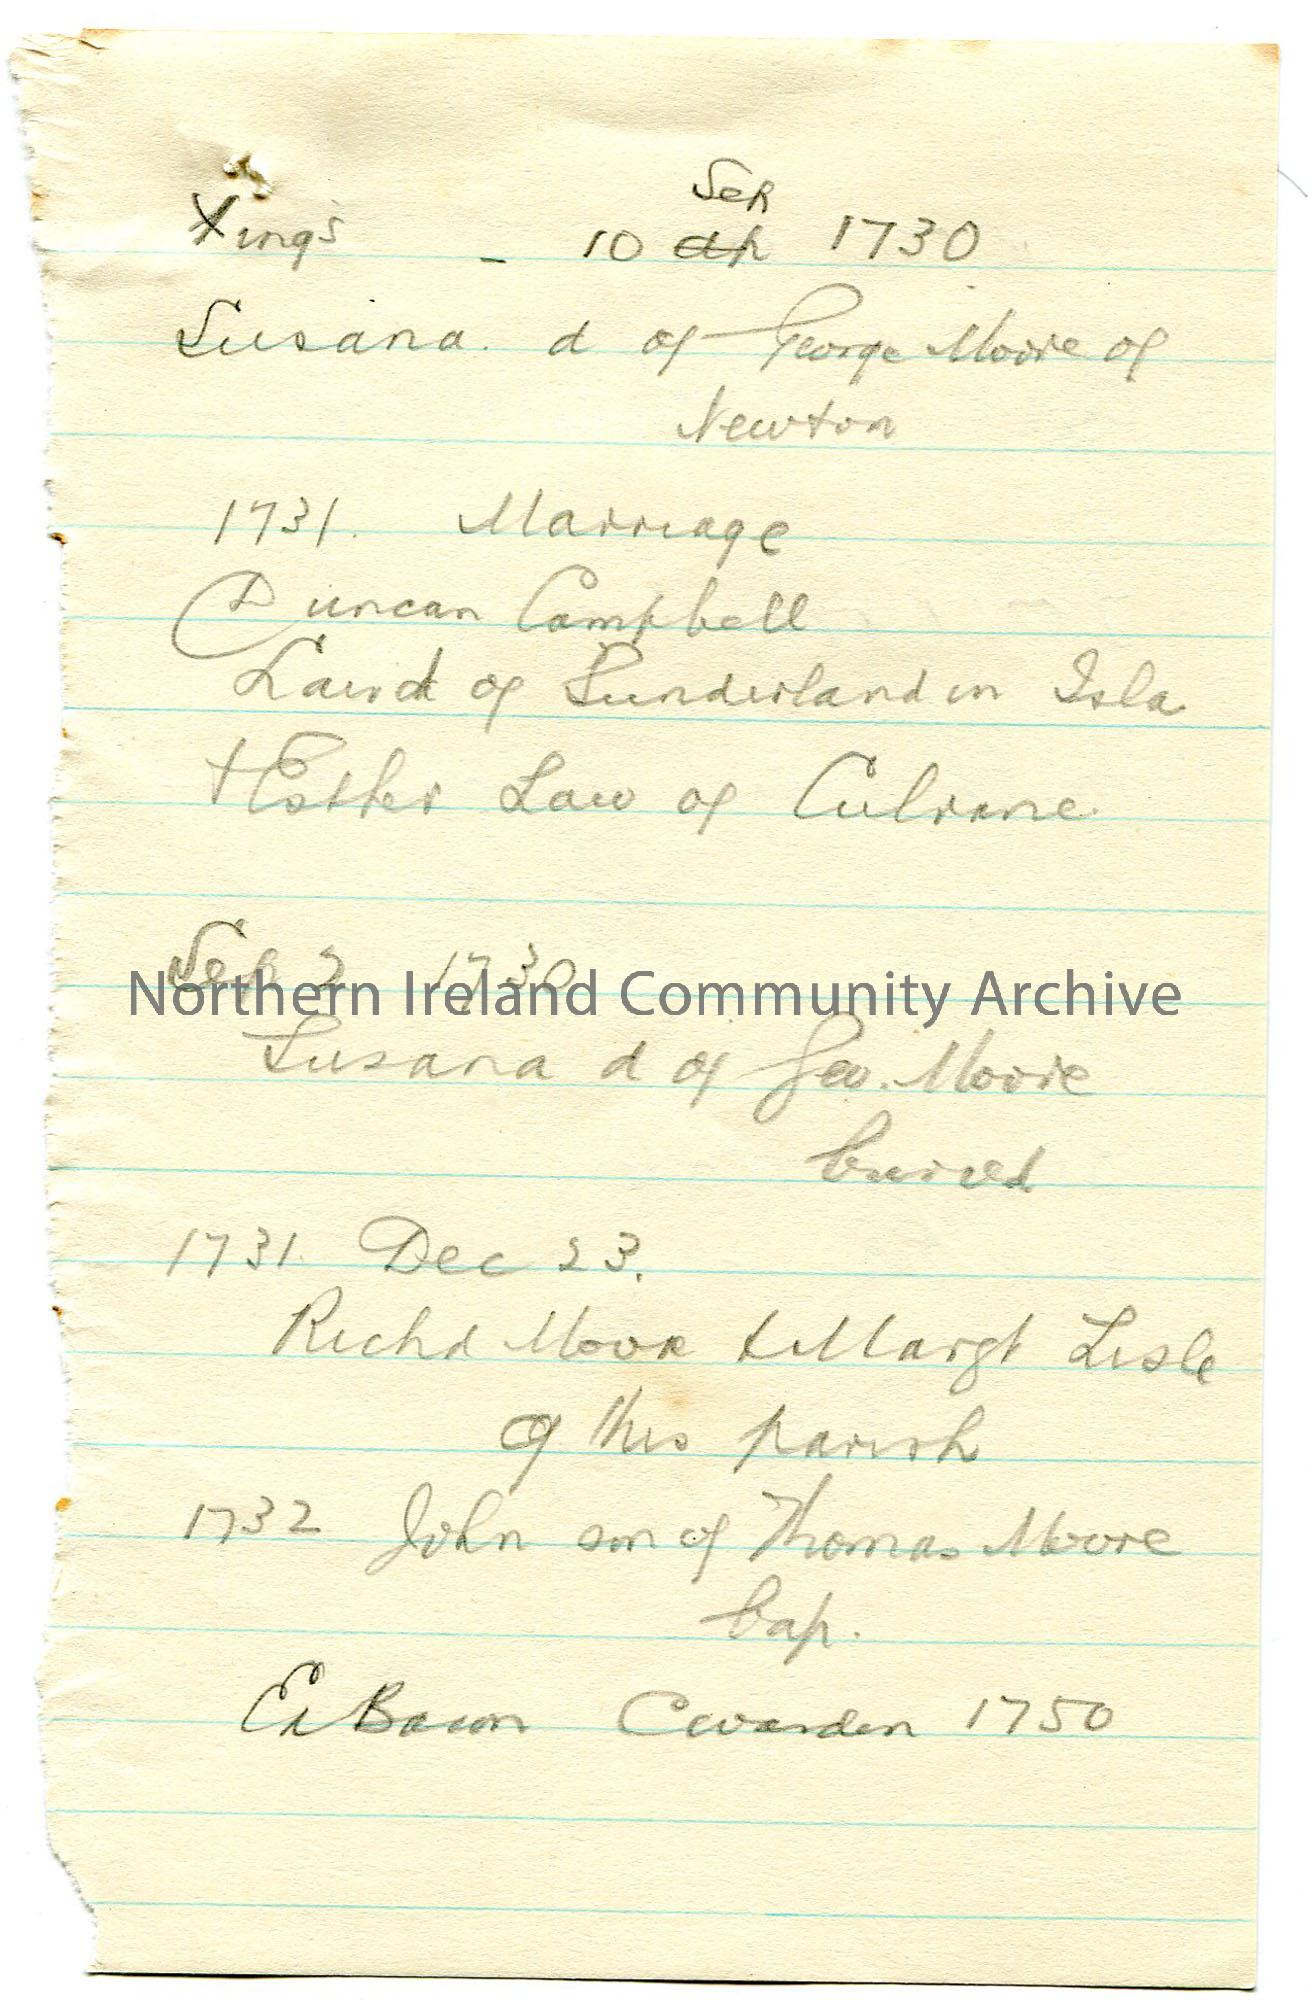 Xings - 10 Sep 1730
Susana. d of George Moore of
Newton
1731. Marriage
Duncan Campbell
Laird of Sunderland in Isla
+ Esther Law of Culrane
Sep 2 1730
Northern Ireland Community Archive
Susana d of Geo. Moore
buried
1731 Dec 23.
Richd Moor & Margt Lisle
of this parish
1732 John son of Thomas Moore
bap.
Ed Bacon Cwarden 1750